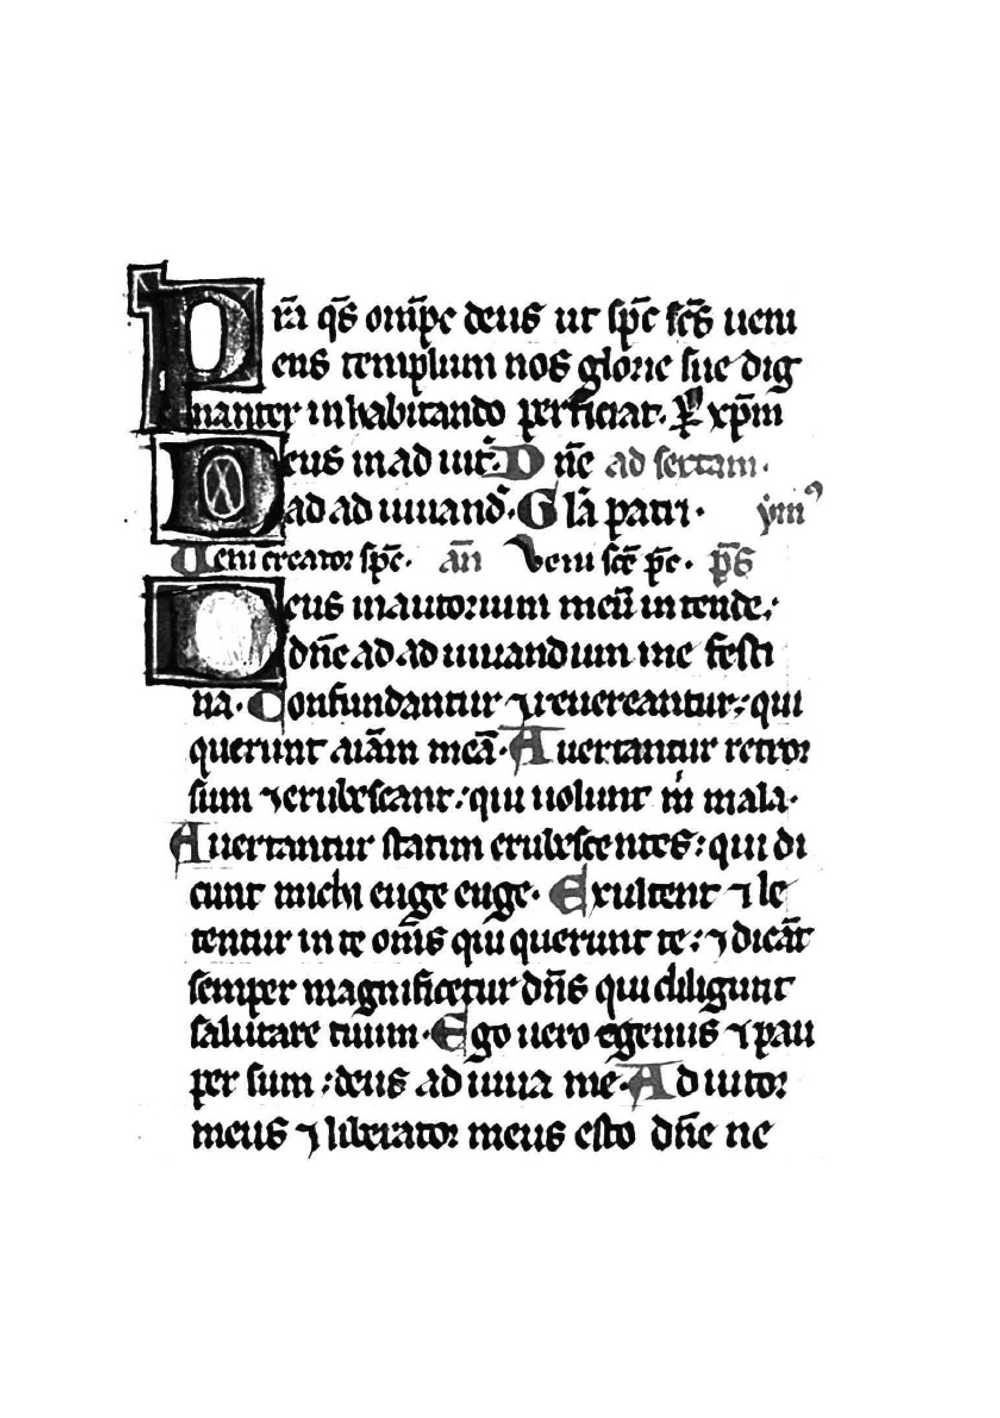 Pr̄a q̄s om̄pc deus ut sp̄c sc̄s ueni
ens templum nos glorie sue dig
nanter inhabitando perficiat. P xp̄m
Deus in ad iut. D n̄e ad sextam.
ad ad iuuand. Gl̄a patri. ym̄
Veni creator sp̄c. an̄ Veni sc̄e sp̄c. p̄s
Deus in auitorium meū intende:
dn̄e ad ad iuuandum me festi
na. Confundantur ⁊ reuereantur: qui
querunt aīam meā. Auertantur retror
sum ⁊ erubescant: qui uolunt m̄ mala.
Auertantur statim erubescentes: qui di
cunt michi euge euge. Exultent ⁊ le
tentur in te om̄s qui querunt te: ⁊ dicāt
semper magnificetur dn̄s qui diligunt
salutare tuum. Ego uero egenus ⁊ pau
per sum: deus ad iuua me. Ad iutor
meus ⁊ liberator meus esto dn̄e ne